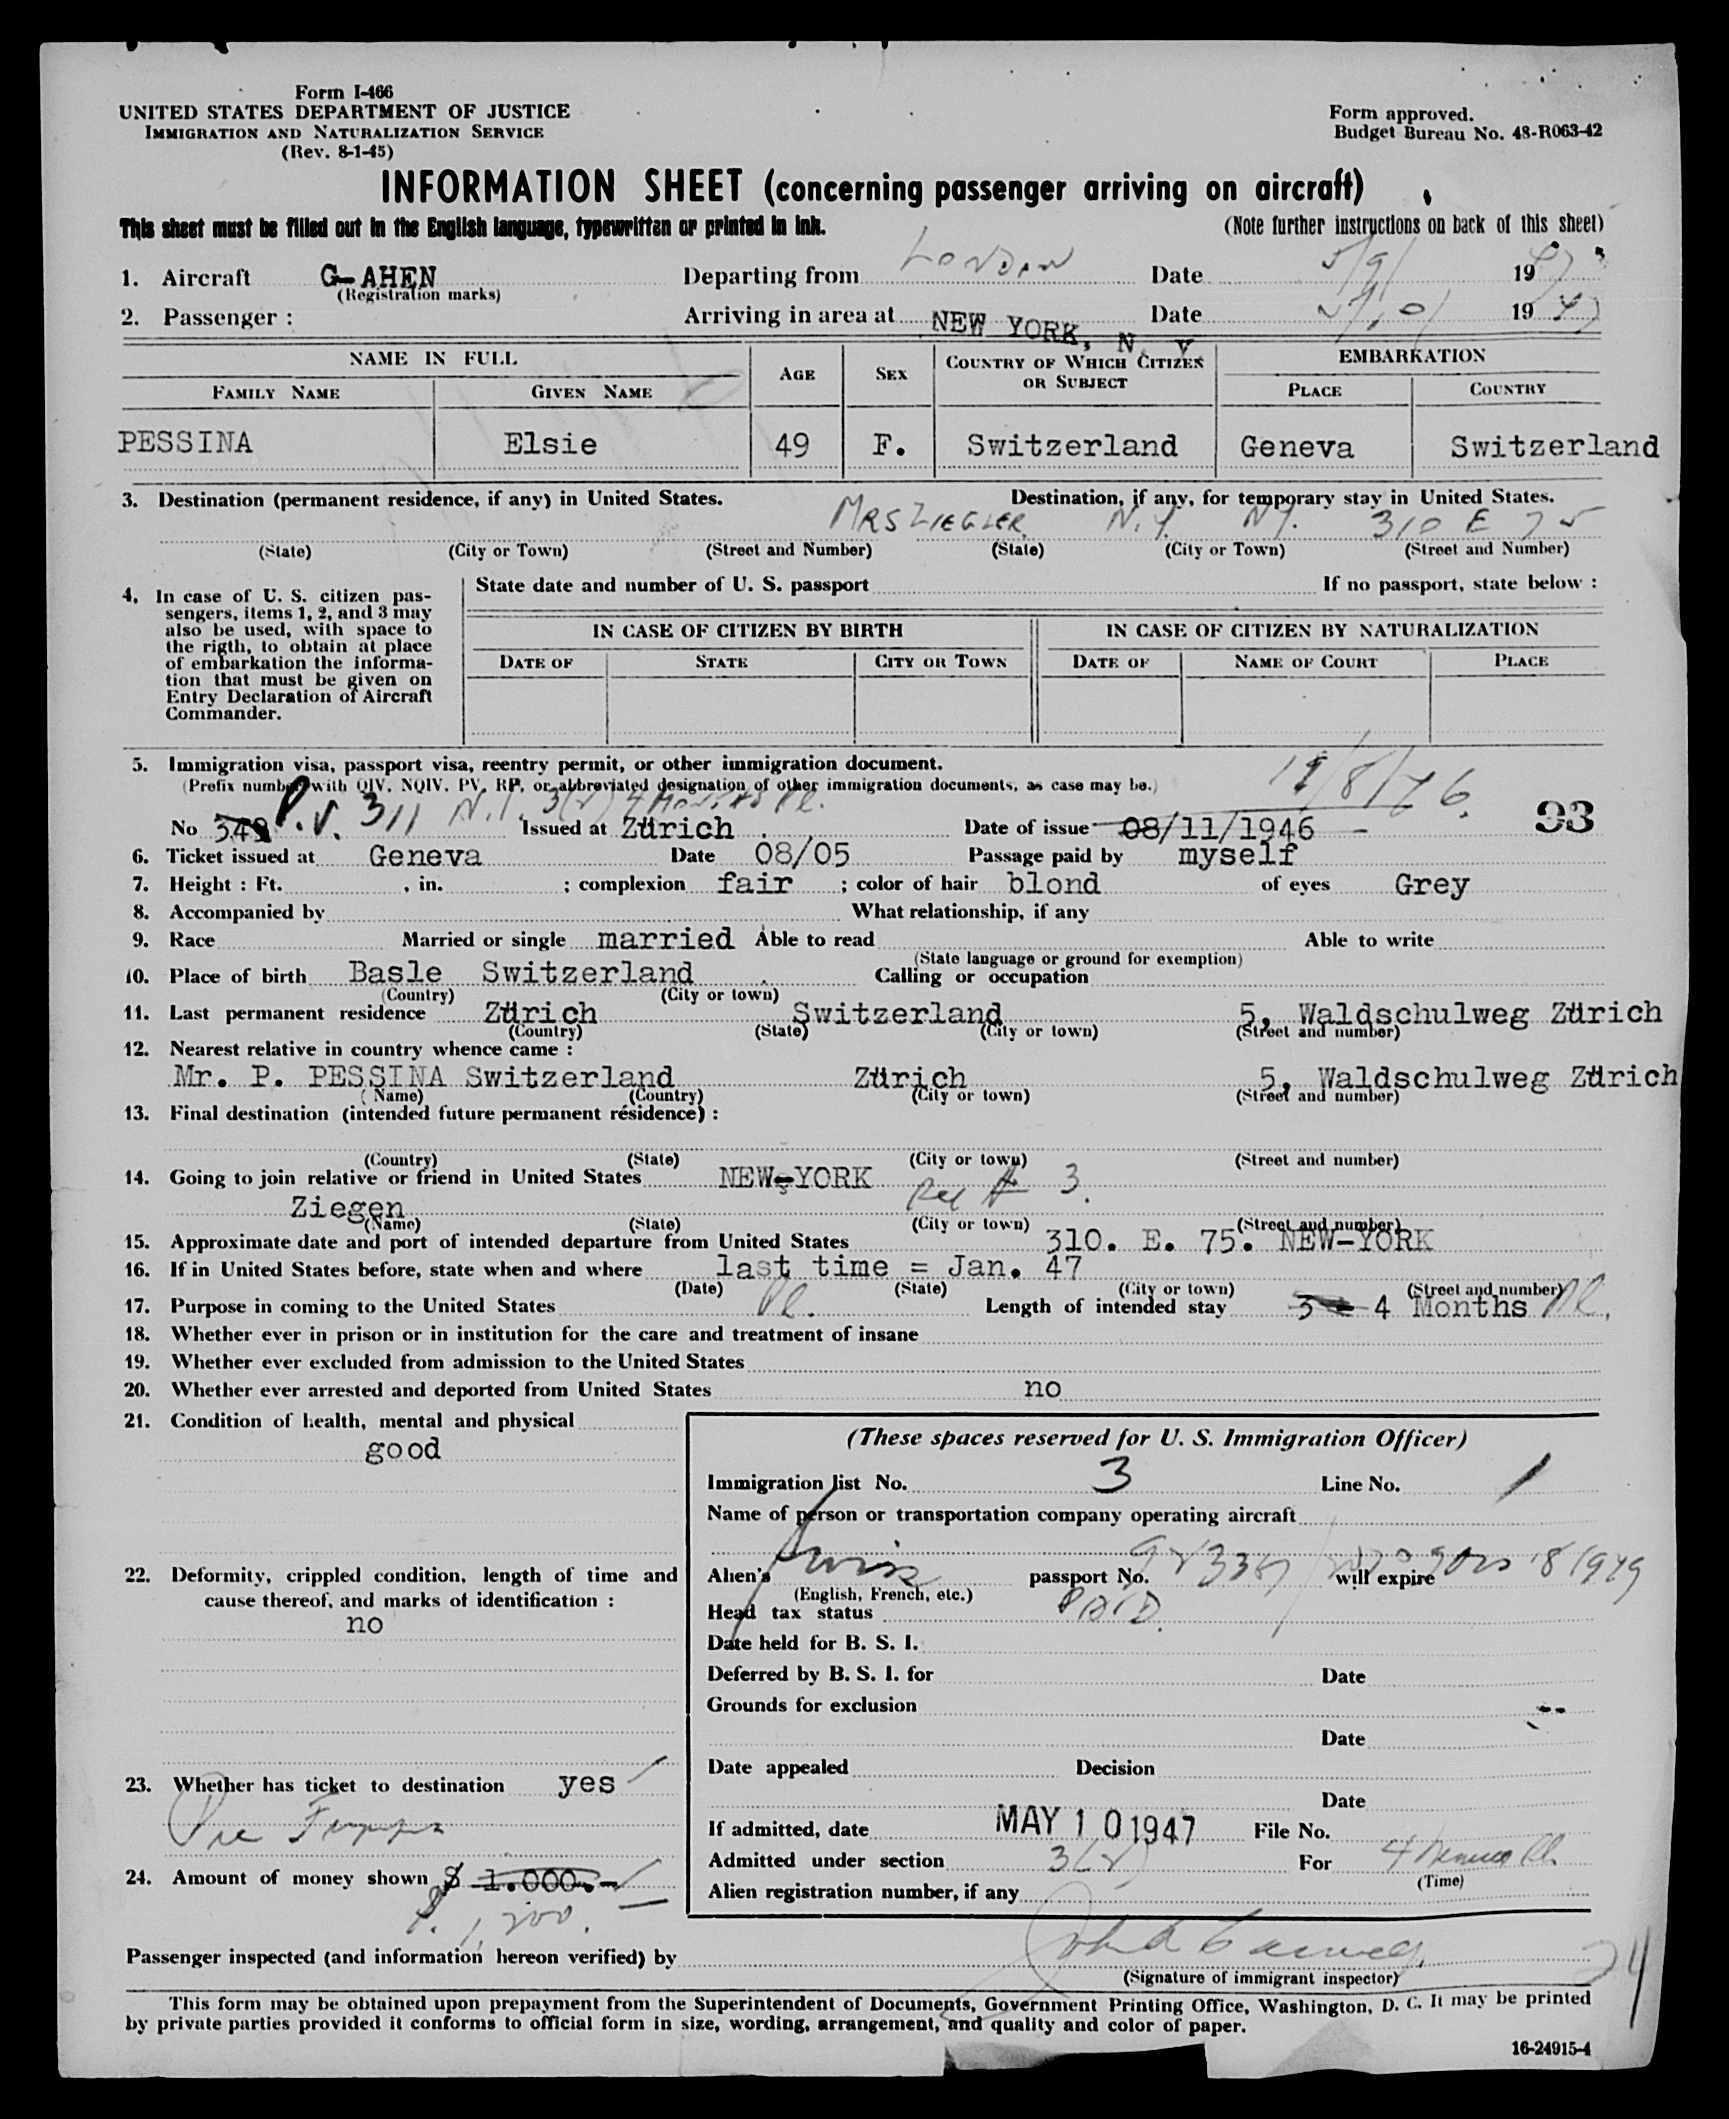 Form I-466
UNITED STATES DEPARTMENT OF JUSTICE
IMMIGRATION AND NATURALIZATION SERVICE
(Rev. 8-1-45)
Form approved.
Budget Bureau No. 43-R063-42
INFORMATION SHEET (concerning passenger arriving on aircraft)
This sheet must be filled out in the English language, typewritten or printed in ink.
(Note further instructions on back of this sheet)
1. Aircraft G-AHEN Departing from LONDON Date 5/9/ 1947
(Registration marks)
2. Passenger : Arriving in area at NEW YORK, N. Y. Date 5/10/ 1947
NAME IN FULL AGE SEX COUNTRY OF WHICH CITIZEN OR SUBJECT EMBARKATION
FAMILY NAME GIVEN NAME PLACE COUNTRY
PESSINA Elsie 49 F. Switzerland Geneva Switzerland
3. Destination (permanent residence, if any) in United States. Destination, if any, for temporary stay in United States.
MRS ZIEGLER N.Y. N.Y. 310 E 75
(State) (City or Town) (Street and Number) (State) (City or Town) (Street and Number)
4. In case of U. S. citizen pas-
sengers, items 1, 2, and 3 may
also be used, with space to
the rigth, to obtain at place
of embarkation the informa-
tion that must be given on
Entry Declaration of Aircraft
Commander.
State date and number of U. S. passport If no passport, state below :
IN CASE OF CITIZEN BY BIRTH IN CASE OF CITIZEN BY NATURALIZATION
DATE OF STATE CITY OR TOWN DATE OF NAME OF COURT PLACE
5. Immigration visa, passport visa, reentry permit, or other immigration document.
(Prefix number with QIV, NQIV, PV, RP, or abbreviated designation of other immigration documents, as case may be.)
11/8/46.
No 349 P.V. 311 N.I. 3(2) 4 Months Pl. Issued at Zürich Date of issue 08/11/1946 93
6. Ticket issued at Geneva Date 08/05 Passage paid by myself
7. Height : Ft. , in. ; complexion fair ; color of hair blond of eyes Grey
8. Accompanied by What relationship, if any
9. Race Married or single married Able to read Able to write
(State language or ground for exemption)
10. Place of birth Basle Switzerland Calling or occupation
(Country) (City or town)
11. Last permanent residence Zürich Switzerland 5, Waldschulweg Zürich
(Country) (State) (City or town) (Street and number)
12. Nearest relative in country whence came :
Mr. P. PESSINA Switzerland Zürich 5, Waldschulweg Zürich
(Name) (Country) (City or town) (Street and number)
13. Final destination (intended future permanent résidence) :
(Country) (State) (City or town) (Street and number)
14. Going to join relative or friend in United States NEW-YORK # 3.
Ziegen
(Name) (State) (City or town) (Street and number)
15. Approximate date and port of intended departure from United States 310. E. 75. NEW-YORK
16. If in United States before, state when and where last time = Jan. 47
(Date) (State) (City or town) (Street and number)
17. Purpose in coming to the United States Pl. Length of intended stay 3 - 4 Months Pl.
18. Whether ever in prison or in institution for the care and treatment of insane
19. Whether ever excluded from admission to the United States
20. Whether ever arrested and deported from United States no
21. Condition of health, mental and physical
good
22. Deformity, crippled condition, length of time and
cause thereof, and marks of identification :
no
23. Whether has ticket to destination yes
24. Amount of money shown $ 1.000.-
1,200.
(These spaces reserved for U. S. Immigration Officer)
Immigration list No. 3 Line No. 1
Name of person or transportation company operating aircraft
Alien's Swiss passport No. will expire 1949
(English, French, etc.)
Head tax status PAID.
Date held for B. S. I.
Deferred by B. S. I. for Date
Grounds for exclusion
Date
Date appealed Decision
Date
If admitted, date MAY 10 1947 File No.
Admitted under section 3(2) For 4 Pl.
(Time)
Alien registration number, if any
Passenger inspected (and information hereon verified) by
(Signature of immigrant inspector)
24
This form may be obtained upon prepayment from the Superintendent of Documents, Government Printing Office, Washington, D. C. It may be printed
by private parties provided it conforms to official form in size, wording, arrangement, and quality and color of paper.
16-24915-4